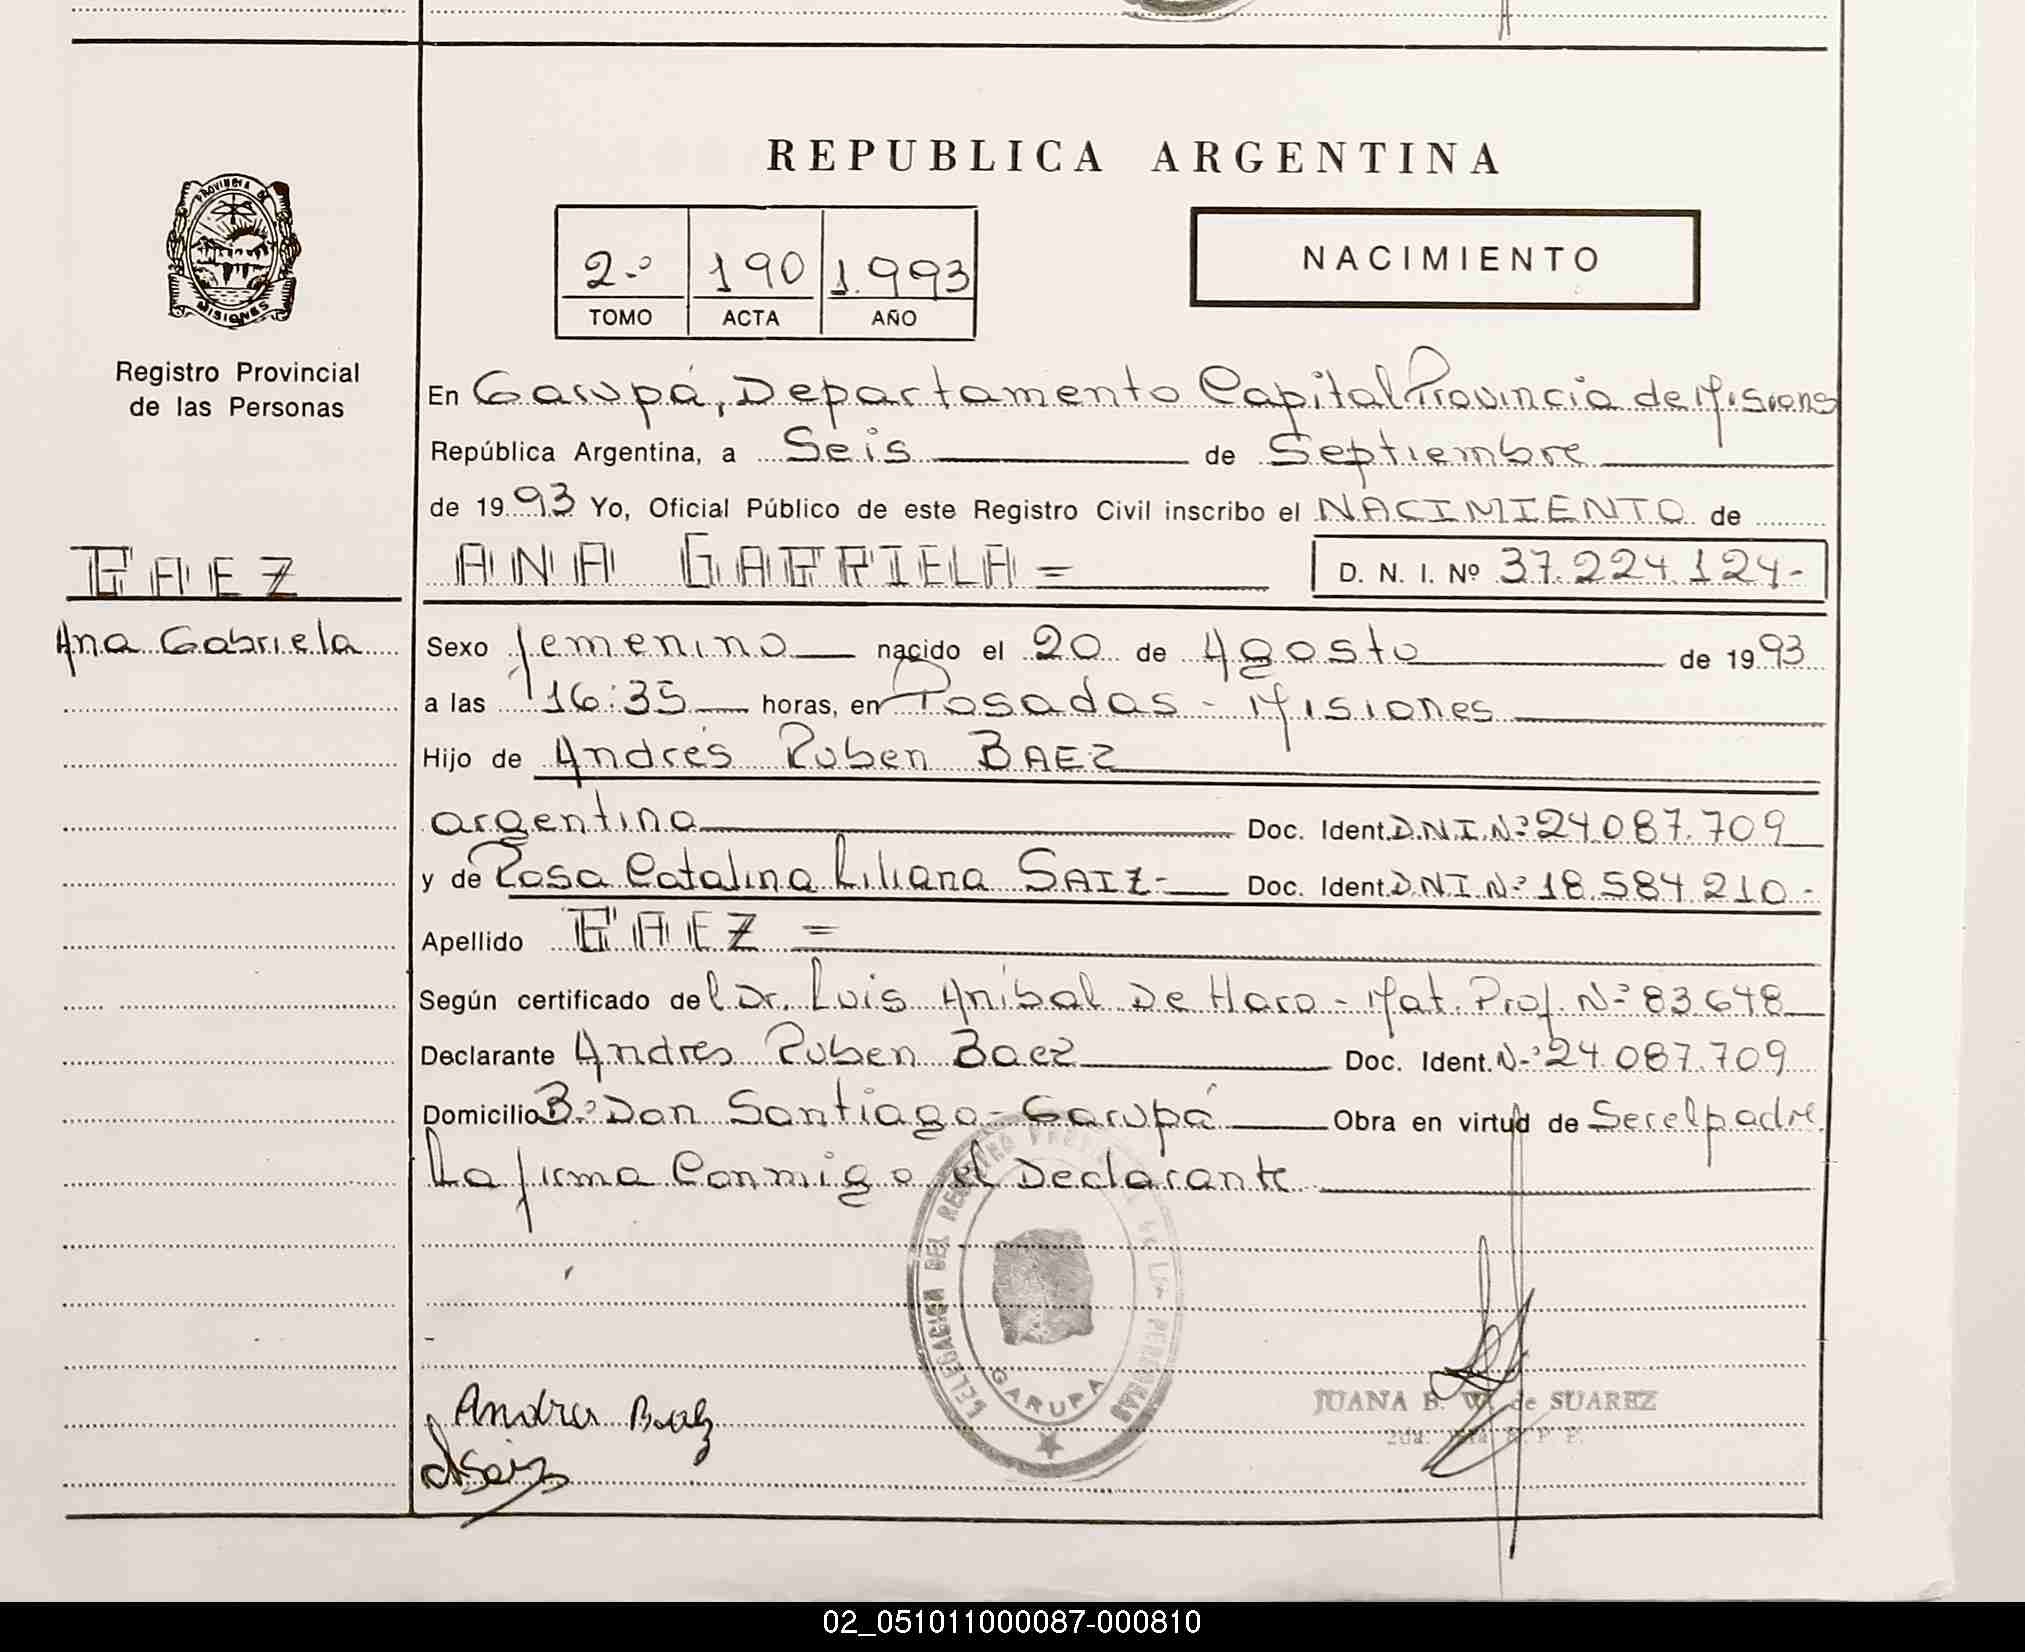 REPUBLICA ARGENTINA
PROVINCIA DE
MISIONES
Registro Provincial
de las Personas
2.º 190 1.993
TOMO ACTA AÑO
NACIMIENTO
En Garupá, Departamento Capital Provincia de Misiones
República Argentina, a Seis de Septiembre
de 1993 Yo, Oficial Público de este Registro Civil inscribo el NACIMIENTO de
BAEZ
ANA GABRIELA = D. N. I. Nº 37.224.124-
Ana Gabriela
Sexo femenino nacido el 20 de Agosto de 1993
a las 16:35 horas, en Posadas - Misiones
Hijo de Andrés Ruben BAEZ
argentino Doc. Ident. D.N.I.Nº 24.087.709
y de Rosa Catalina Liliana SAIZ- Doc. Ident. D.N.I.Nº 18.584.210.-
Apellido BAEZ =
Según certificado del Dr. Luis Aníbal De Haro - Mat. Prof. Nº 83.648
Declarante Andres Ruben Baez Doc. Ident. Nº 24.087.709
Domicilio Bº Don Santiago - Garupá Obra en virtud de Ser el padre.
La firma Conmigo el Declarante
DELEGACION DEL REGISTRO DE LAS PERSONAS
GARUPA
Andres Baez
Saiz
JUANA B. W. de SUAREZ
02_051011000087-000810